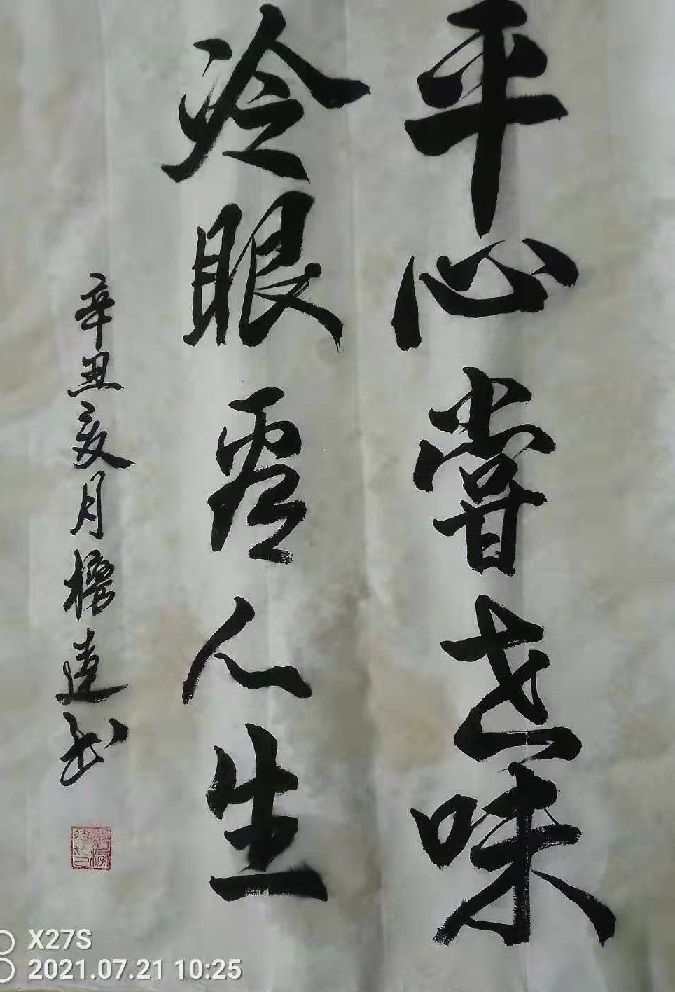 平心嘗世味
冷眼看人生
辛丑亥月 書
X27S
2021.07.21 10:25